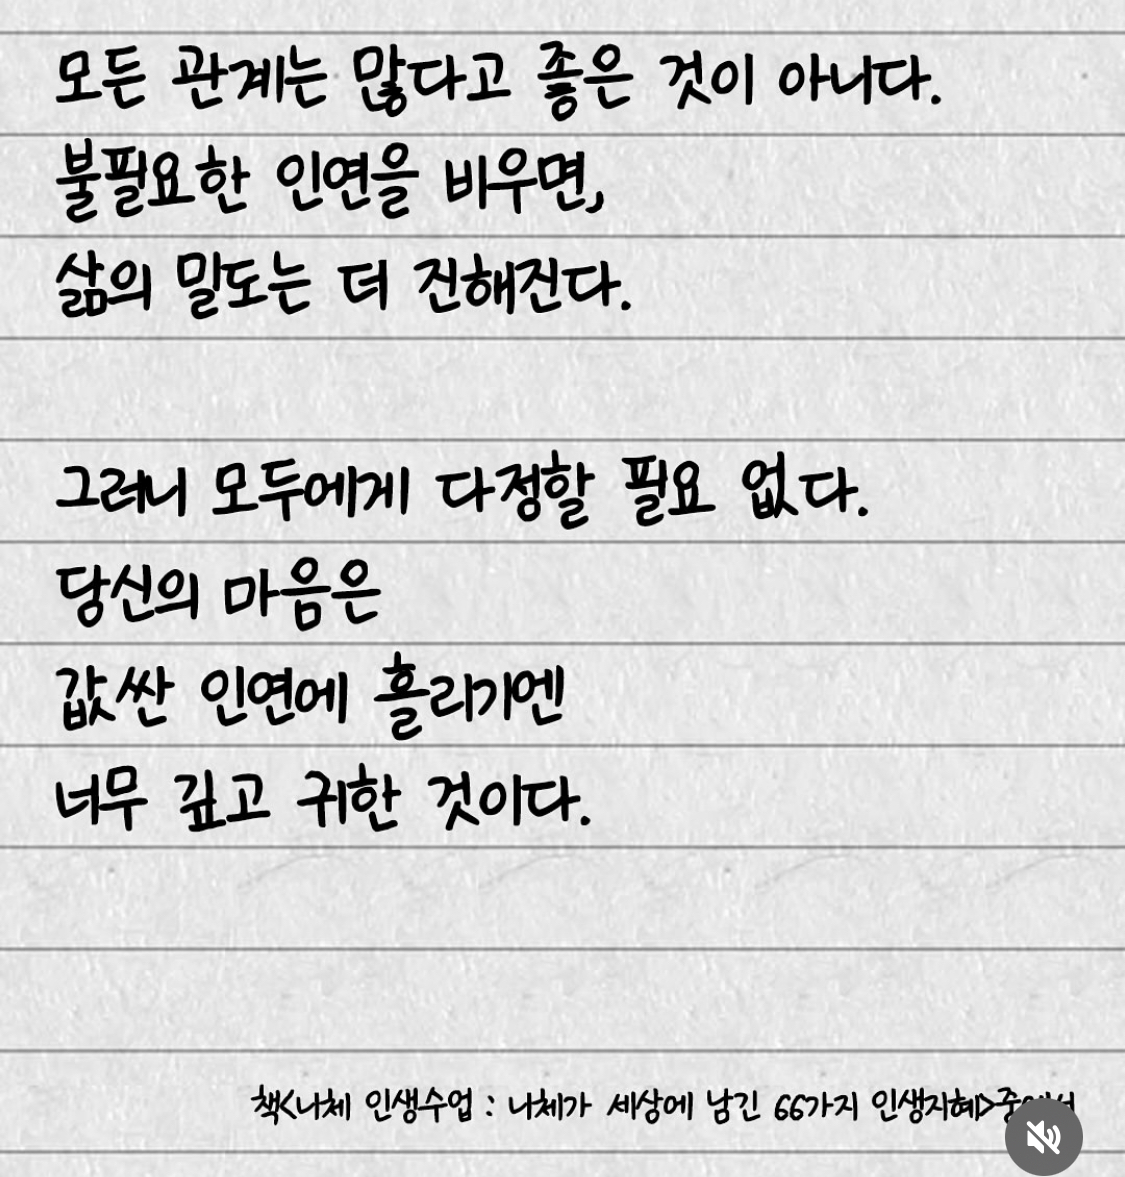 모든 관계는 많다고 좋은 것이 아니다.
불필요한 인연을 비우면,
삶의 밀도는 더 진해진다.
그러니 모두에게 다정할 필요 없다.
당신의 마음은
값싼 인연에 홀리기엔
너무 깊고 귀한 것이다.
책<니체 인생수업 : 니체가 세상에 남긴 66가지 인생지혜>중에서